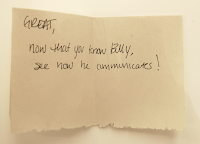 GREAT,
now that you know Billy,
see how he communicates!